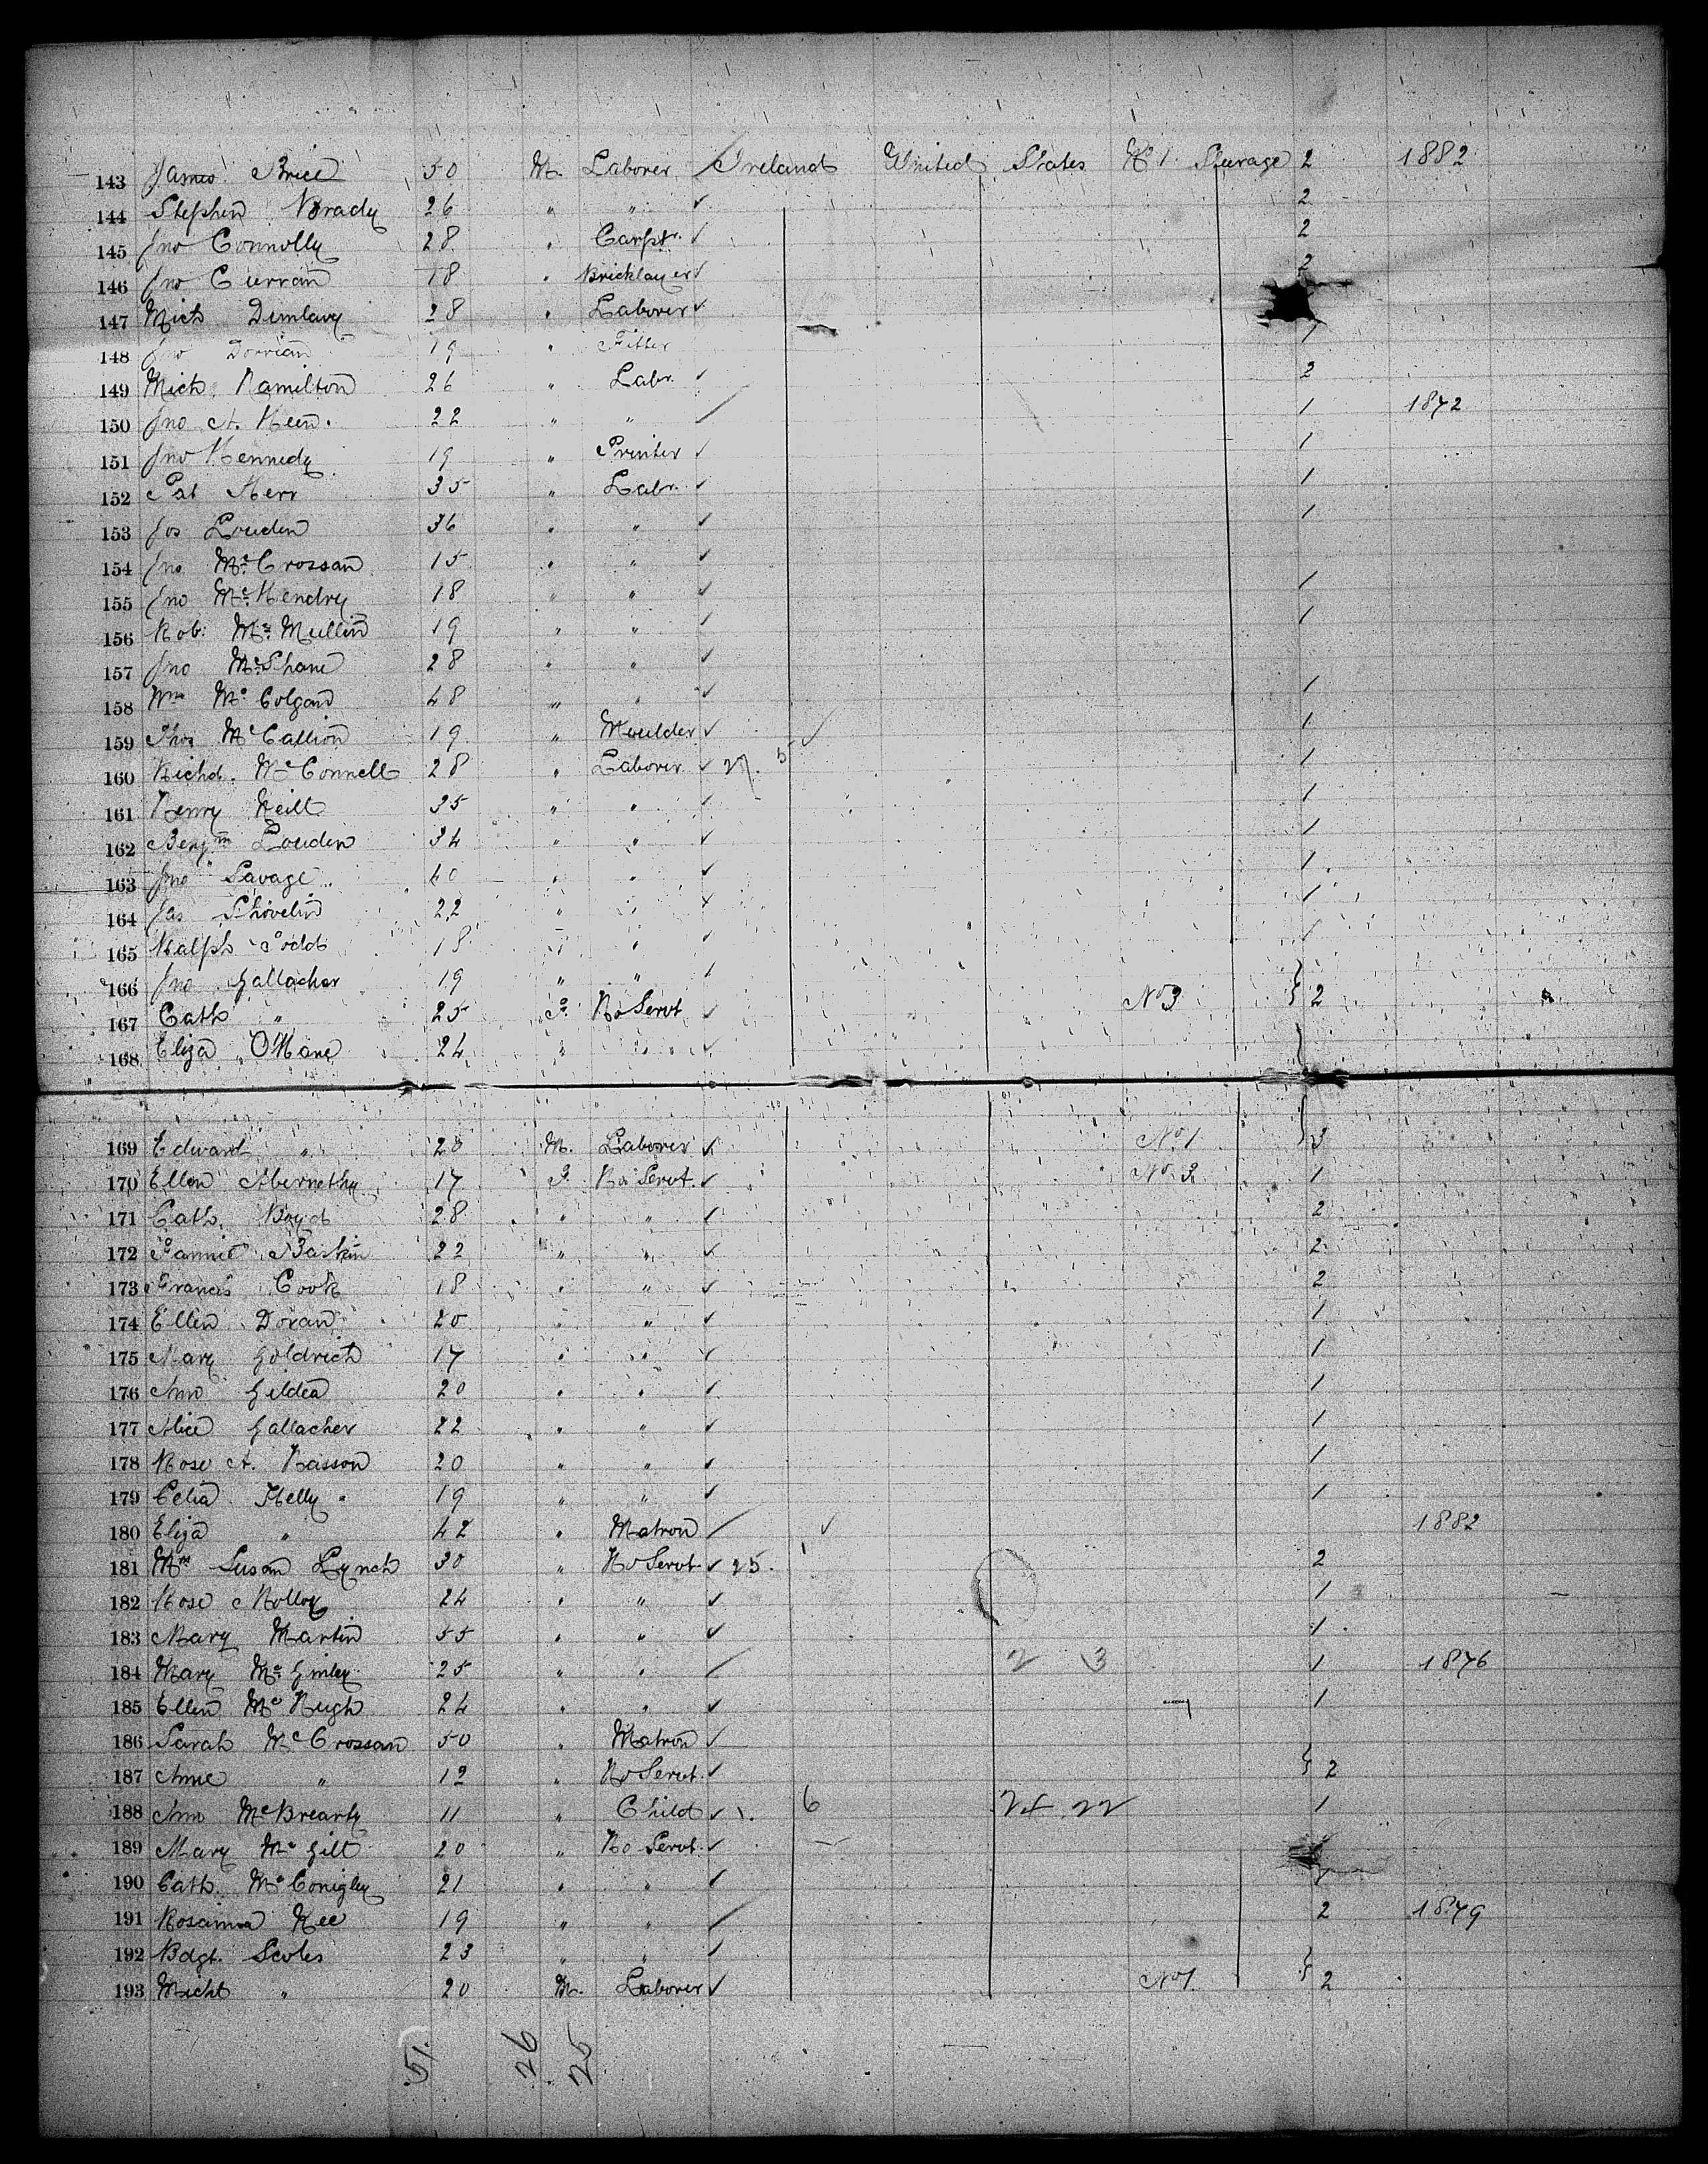 143 James Brice 50 M. Laborer Ireland United States No 1 Steerage 2 1882
144 Stephen Brady 26 " " ✓ 2
145 Jno Connolly 28 " Carptr. ✓ 2
146 Jno Curran 18 " Bricklayer ✓ 2
147 Mich Dunlavy 28 " Laborer ✓
148 Jno Dorrian 19 " Fitter 1
149 Mich Hamilton 26 " Labr. ✓ 2
150 Jno A. Keen. 22 " " / 1 1872
151 Jno Kennedy 19 " Printer ✓ 1
152 Pat Kerr 35 " Labr. ✓ 1
153 Jos Louden 36 " " ✓ 1
154 Jno McCrossan 15 " " ✓
155 Jno McHendry 18 " " ✓ 1
156 Rob: McMullin 19 " " ✓ 1
157 Jno McShane 28 " " ✓
158 Wm McColgan 48 " " ✓ 1
159 Thos McCallion 19 " Moulder ✓ ✓ 1
160 Richd. McConnell 28 " Laborer ✓ 27. 5 1
161 Henry Neill 35 " " ✓ 1
162 Benjm Louden 34 " " ✓ 1
163 Jno Savage 40 " " ✓ 1
164 Jas Shovelin 22 " " ✓ 1
165 Ralph Todd 18 " " ✓
166 Jno Gallacher 19 " " ✓
167 Cath " 25 F. Ho Servt ✓ No 3 } 2
168 Eliza O'Kane 24 " " ✓
169 Edward " 20 M. Laborer ✓ No 1 } 3
170 Ellen Abernethy 17 F. Ho Servt. ✓ No. 3 1
171 Cath. Boyd 28 " " ✓ 2
172 Fannie Baskin 22 " " ✓ 2
173 Francis Cook 18 " " ✓ 2
174 Ellen Doran 20 " " ✓ 1
175 Mary Goldrich 17 " " ✓ 1
176 Ann Gildea 20 " " ✓ 1
177 Alice Gallacher 22 " " ✓ 1
178 Rose A. Hasson 20 " " ✓ 1
179 Celia Kelly 19 " " ✓ 1
180 Eliza " 42 " Matron / ✓ 1882
181 Mrs Susan Lynch 30 " Ho Servt ✓ 25. 2
182 Rose Molloy 24 " " ✓ 1
183 Mary Martin 55 " " ✓ 1
184 Mary McGinley 25 " " / 2 3 1 1876
185 Ellen McHugh 24 " " ✓ 1
186 Sarah McCrossan 50 " Matron ✓
187 Anne " 12 " Ho Servt. ✓ } 2
188 Ann McBrearty 11 " Child ✓ 1. 6 24 22 1
189 Mary McGill 20 " Ho Servt. ✓
190 Cath. McConigley 21 " " ✓
191 Rosanna Kee 19 " " / 2 1879
192 Bdgt. Scoles 23 " " ✓
193 Michl " 20 M. Laborer ✓ No 1. } 2
51. 26 25